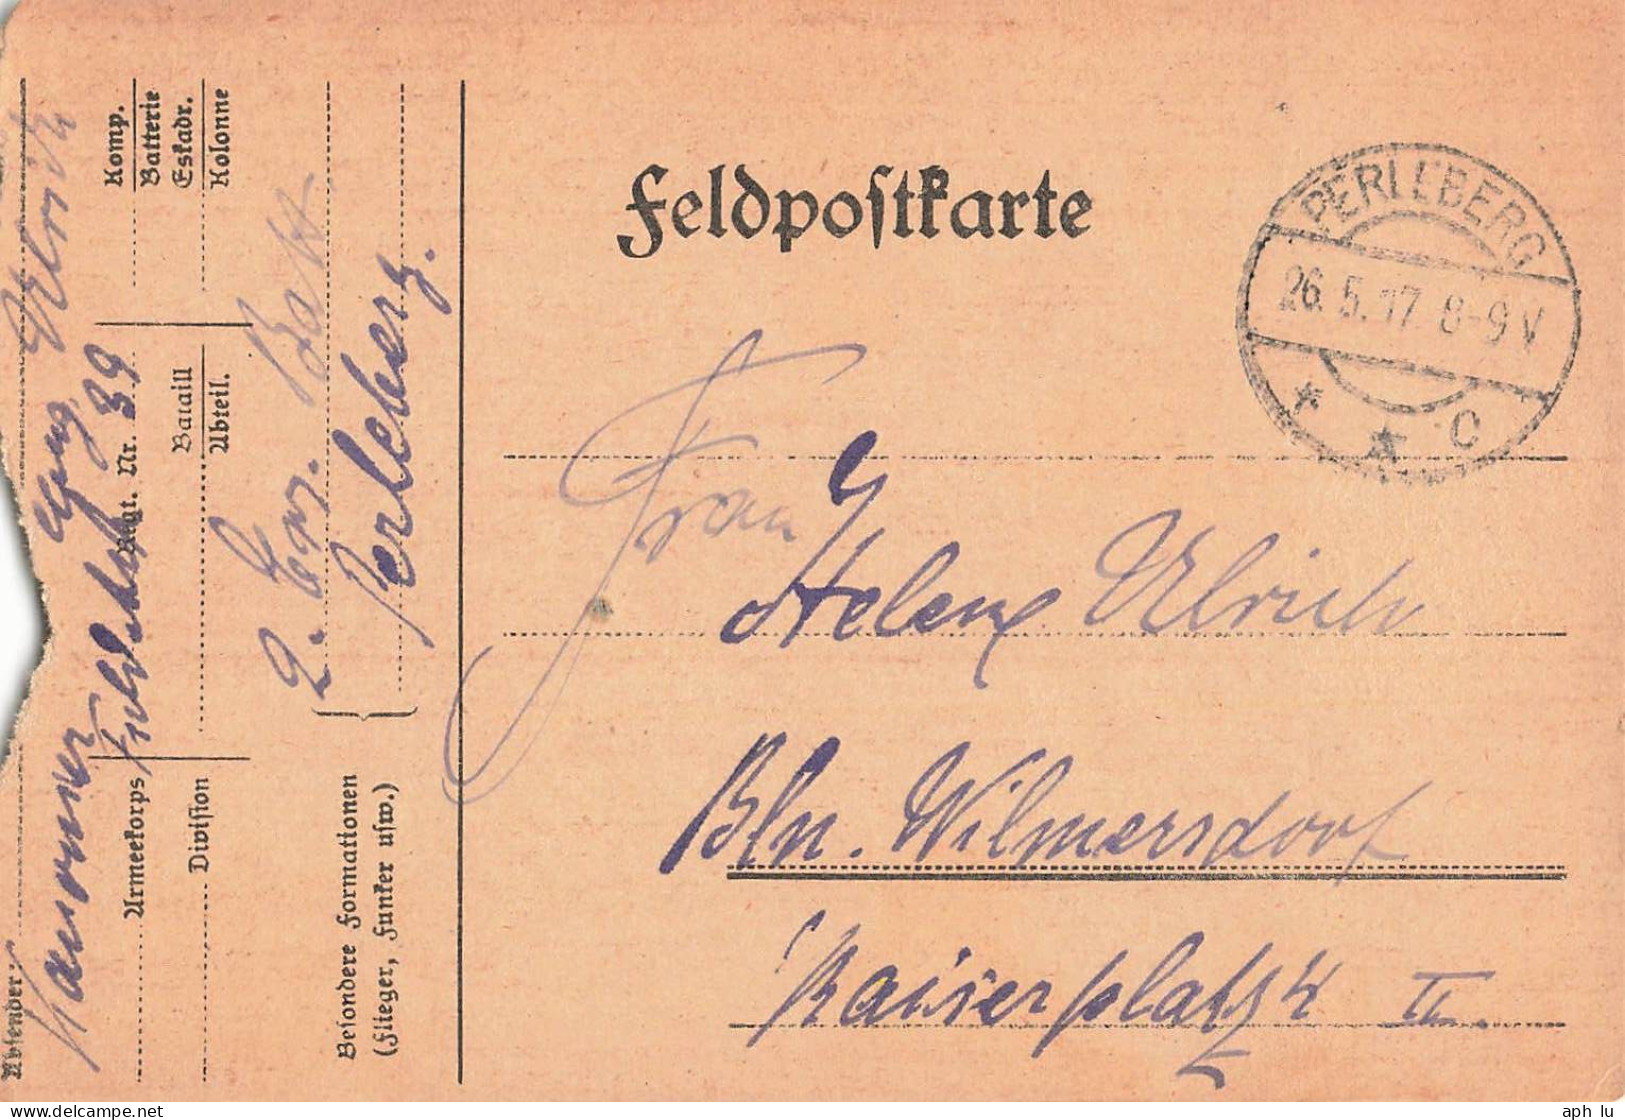 Feldpostkarte
PERLEBERG
26.5.17. 8-9 V
* * C
Frau
Helene Ulrich
Bln. Wilmersdorf
Kaiserplatz 4 II.
Absender:
Kanonier Ulrich
Armeekorps Regt. Nr. 39 Komp.
Batterie
Division Bataill Eskadr.
Abteil. Kolonne
2. Ers. Batt
Besondere Formationen Perleberg.
(Flieger, Funker usw.)
aph lu